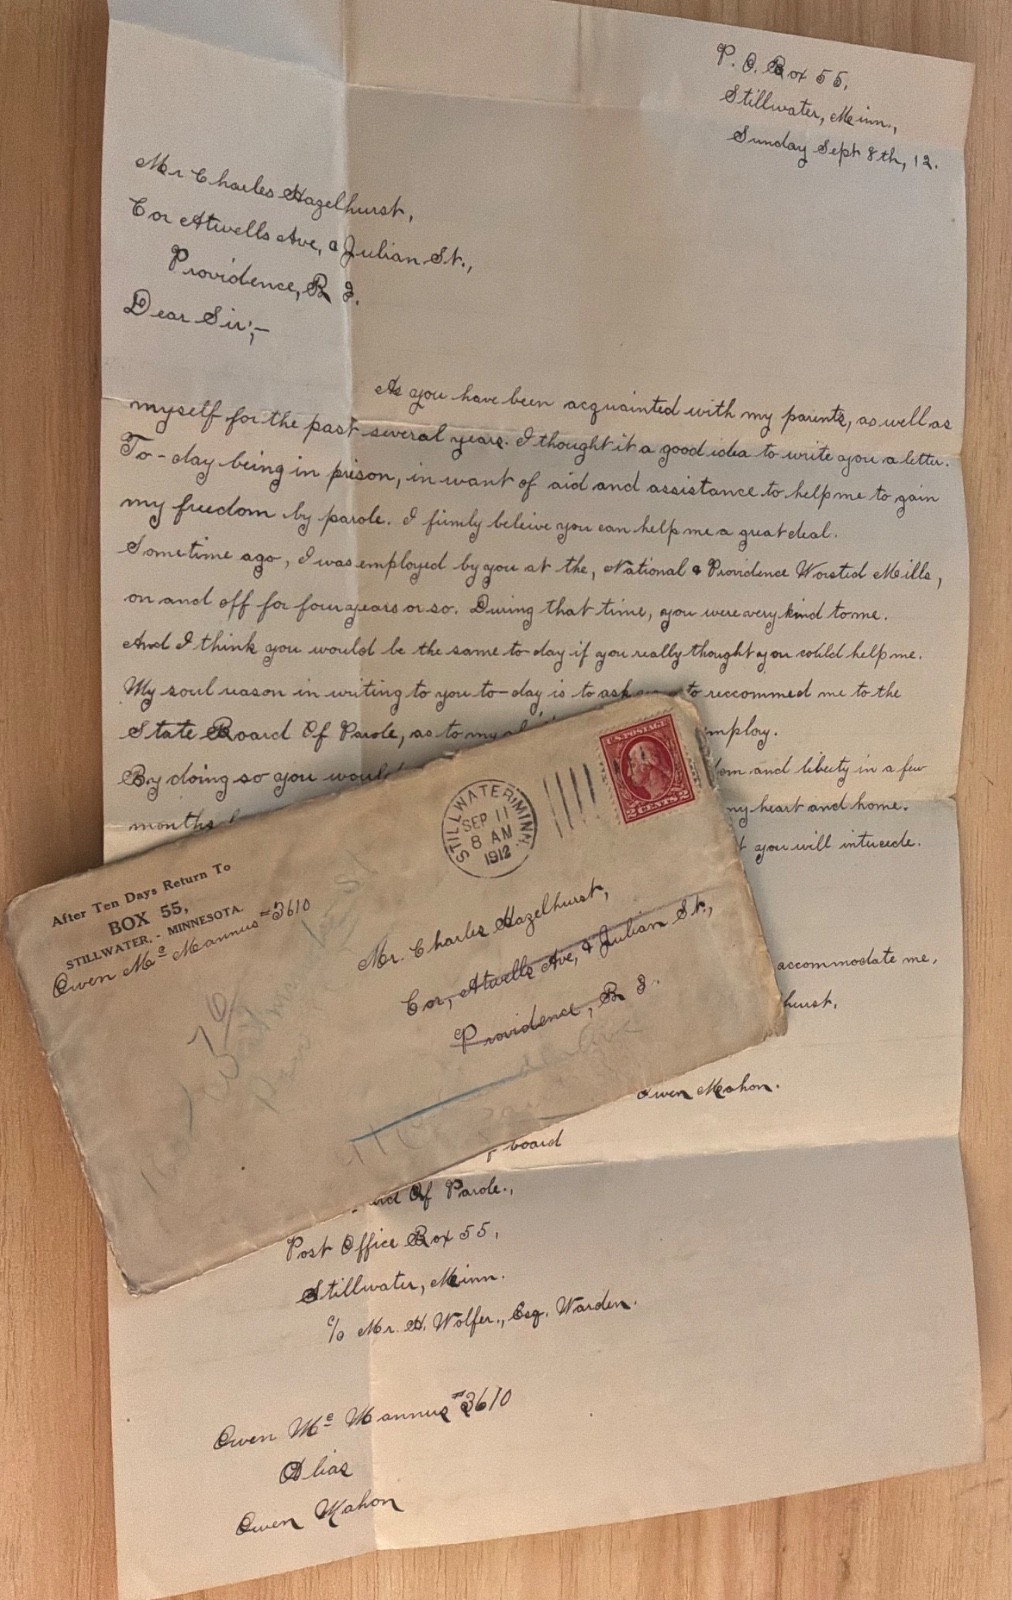 P. O. Box 55,
Stillwater, Minn.,
Sunday Sept 8th, 12.
Mr Charles Hazelhurst,
Cor Atwells Ave, & Julian St.,
Providence, R I.
Dear Sir;-
As you have been acquainted with my parents, as well as
myself for the past several years. I thought it a good idea to write you a letter.
To-day being in prison, in want of aid and assistance to help me to gain
my freedom by parole. I firmly beleive you can help me a great deal.
Sometime ago, I was employed by you at the, National & Providence Worsted Mills,
on and off for four years or so. During that time, you were very kind to me.
And I think you would be the same to-day if you really thought you could help me.
My soul reason in writing to you to-day is to ask to reccommed me to the
State Board Of Parole, as to my employ.
By doing so you would and liberty in a few
months my heart and home.
you will intercede.
accommodate me,
Owen Mahon.
board
Of Parole.,
Post Office Box 55,
Stillwater, Minn.
c/o Mr. H. Wolfer., Esq. Warden.
Owen Mc Mannus #3610
Alias
Owen Mahon
After Ten Days Return To
BOX 55,
STILLWATER, - MINNESOTA.
Owen Mc Mannus #3610
STILLWATER, MINN.
SEP 11
8 AM
1912
U.S. POSTAGE
2 CENTS 2
Mr. Charles Hazelhurst,
Cor, Atwells Ave, & Julian St.,
Providence, R I.